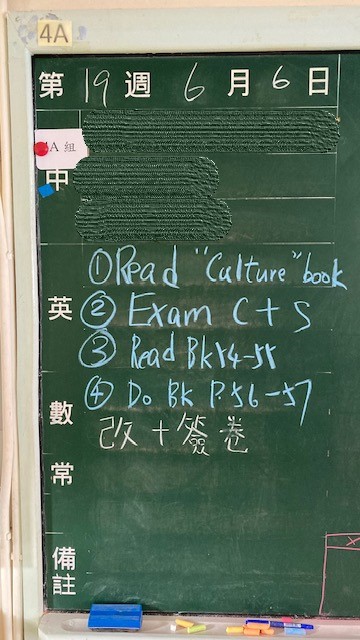 4A
第 19 週 6 月 6 日
4A 組
中
① Read "Culture" book
英 ② Exam C + S
③ Read Bk 54-55
④ Do Bk P. 56-57
數 改 + 簽卷
常
備註